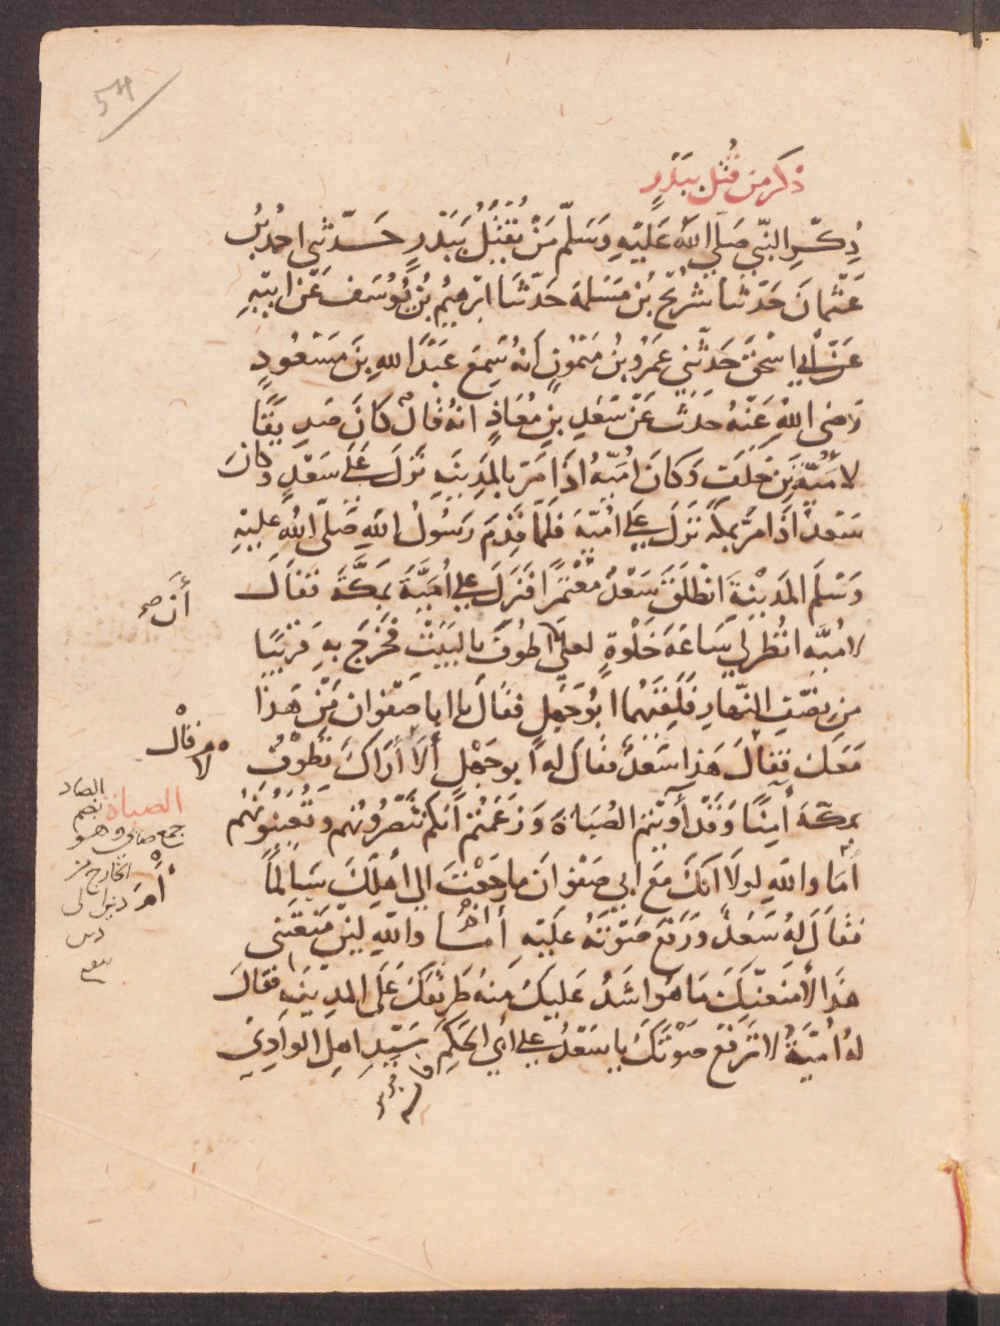 54
ذكر من قتل ببدر
ذِكْرِ النبي صَلّى اللهُ عَلَيْهِ وَسَلَّمَ مَنْ يُقْتَلُ بِبَدْرٍ حَدّثني احمد بنُ
عُثْمانَ حَدّثنا شُرَيْحُ بْنُ مَسْلمة حَدّثَنا ابْرهيمُ بْنُ يُوسَف عَنْ ابيهِ
عَنْ ابي اسْحٰق حَدثني عَمْرُو بْنُ مَيْمُونٍ انهُ سَمِعَ عَبْدَ اللهِ بنَ مَسْعُودٍ
رَضِى اللهُ عَنْهُ حَدّث عَنْ سَعْدِ بنِ مُعَاذٍ انهُ قال كَانَ صَدِيقًا
لِأُمَيَّةَ بن خَلَفٍ وَكانَ اُمَيّةُ اذَا مَرّ بالمَدِينَةِ نَزَلَ عَلَى سَعْدٍ وَكانَ
سَعْدٌ اذَا مَرَّ بمكَّة نَزَلَ عَلَى اُمَيَّة فَلَمَّا قَدِمَ رَسُولُ اللهِ صَلّى اللهُ عليهِ
وَسَلَمَ المَدِيْنَةَ انْطَلَقَ سَعْدٌ مُعْتَمِرًا فَنَزَلَ عَلى اُمَيَّةَ بمَكَّةَ فَقالَ
لِأُمَيَّه انظُرلي سَاعَةَ خَلْوةٍ لعلّي اَطُوفَ بالبَيْتِ فخَرَجَ بهِ قريبًا
مِن نِصْفِ النّهارِ فَلَقِيَهُما ابُوجَهْلٍ فقالَ يا ابا صَفْوان مَنْ هَذا
مَعَكَ فقالَ هَذا سَعْدٌ فقالَ له ابو جَهْلٍ ألَا أرَاكَ تَطوْفُ
بمكّة آمِنًا وَقَدْ آوَيْتُمُ الصُّبَاة وَزعَمْتُمْ انكم تنْصُرُونهُم وَتُعِينُونَهُم
أمَا واللهِ لولَا انّكَ مَعَ ابي صَفْوانَ ما رَجَعْتَ الى أهلِكَ سَالِمًا
فَقالَ لهُ سَعْدٌ وَرَفعَ صَوْتَهُ عَلَيْهِ أمَا واللهِ لئِنْ مَنَعْتَني
هذا لأمْنعَنّكَ مَا هُوَ اشَدُّ عَليكَ مِنهُ طَرِيْقَكَ عَلَى المدِينَهِ فقالَ
لهُ اُمَيَّةُ لا تَرْفعْ صَوْتَكَ يا سَعْدُ على ابي الحَكَمِ سَيّدِ اهلِ الوادِي
أن
قال
الصباة
الصاد
بضم
جمع صابى وهو
الخارج من
دين الى
دين
أَمَ